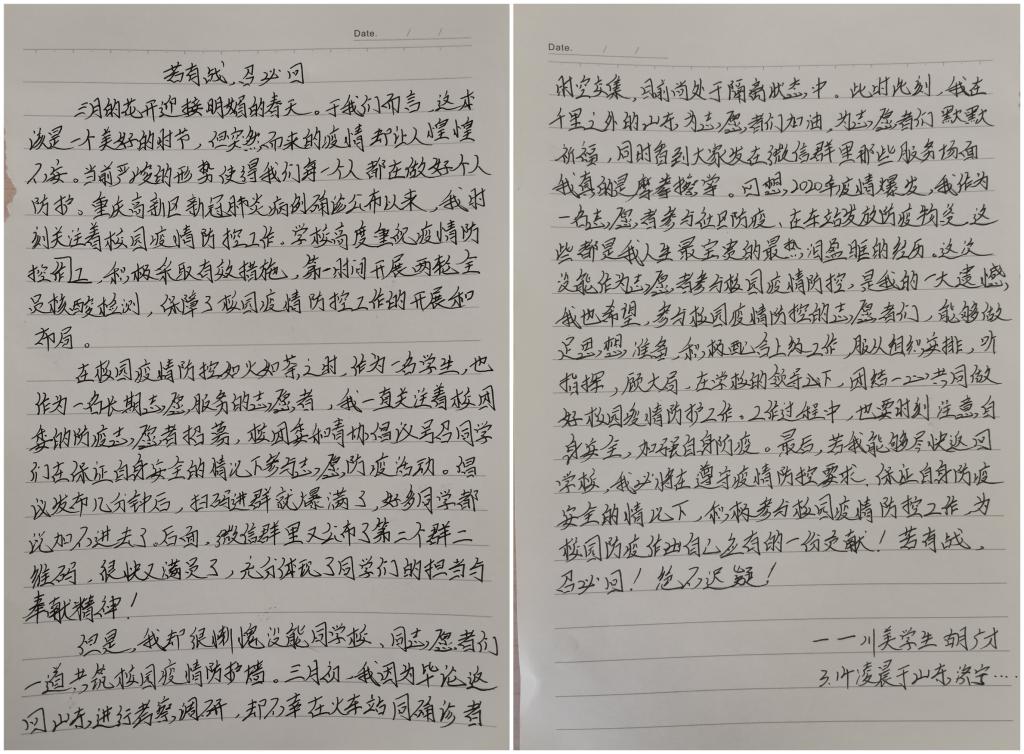 Date. / /
若有战，召必回
三月的花开迎接明媚的春天。于我们而言，这本
该是一个美好的时节，但突然而来的疫情却让人惶惶
不安。当前严峻的形势使得我们每一个人都在做好个人
防护。重庆高新区新冠肺炎病例确诊公布以来，我时
刻关注着校园疫情防控工作。学校高度重视疫情防
控工作，积极采取有效措施，第一时间开展两轮全
员核酸检测，保障了校园疫情防控工作的开展和
布局。
在校园疫情防控如火如荼之时，作为一名学生，也
作为一名长期志愿服务的志愿者，我一直关注着校团
委的防疫志愿者招募，校团委和青协倡议号召同学
们在保证自身安全的情况下参与志愿防疫活动。倡
议发布几分钟后，扫码进群就爆满了，好多同学都
说加不进去了。后面，微信群里又公布了第二个群二
维码，很快又满员了，充分体现了同学们的担当与
奉献精神！
但是，我却很惭愧没能同学校、同志愿者们
一道共筑校园疫情防护墙。三月初，我因为毕论返
回山东进行考察调研，却不幸在火车站同确诊者
Date. / /
时空交集，目前尚处于隔离状态中。此时此刻，我在
千里之外的山东为志愿者们加油，为志愿者们默默
祈福，同时看到大家发在微信群里那些服务场面
我真的是摩拳擦掌。回想，2020年疫情爆发，我作为
一名志愿者参与社区防疫、在车站发放防疫物资，这
些都是我人生最宝贵的最热泪盈眶的经历。这次
没能作为志愿者参与校园疫情防控，是我的一大遗憾，
我也希望，参与校园疫情防控的志愿者们，能够做
足思想准备，积极配合上级工作，服从组织安排，听
指挥，顾大局，在学校的领导下，团结一心共同做
好校园疫情防护工作。工作过程中，也要时刻注意自
身安全，加强自身防疫。最后，若我能够尽快返回
学校，我必将在遵守疫情防控要求、保证自身防疫
安全的情况下，积极参与校园疫情防控工作，为
校园防疫作出自己应有的一份贡献！若有战，
召必回！绝不迟疑！
——川美学生 胡广才
凌晨于山东济宁……